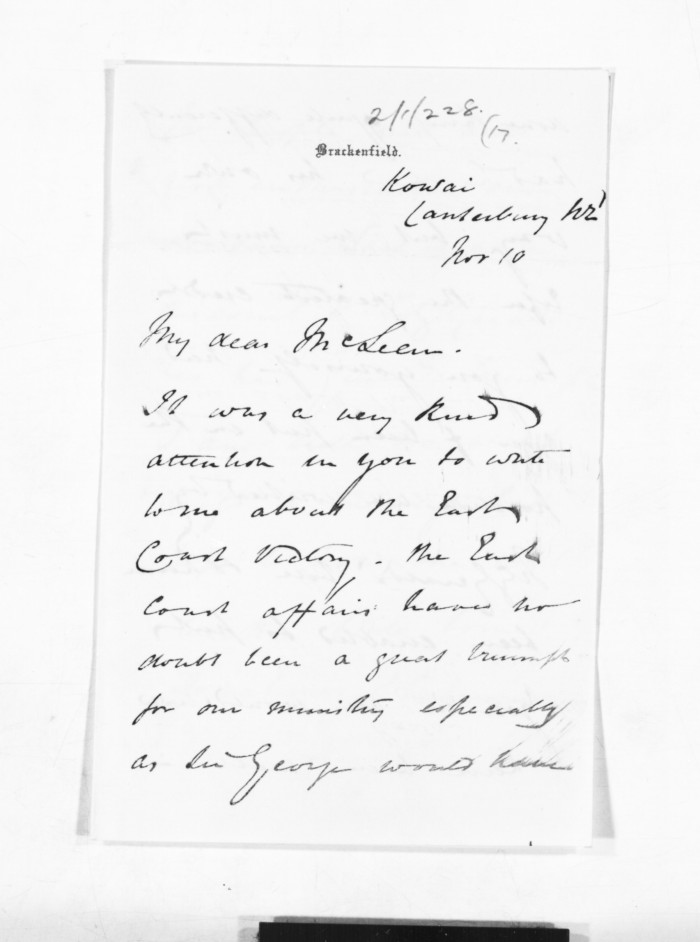 2/1/228.
(17.
Brackenfield.
Kowai
Canterbury NZd
Nov 10
My dear McLean.
It was a very kind
attention in you to write
to me about the East
Coast Victory. The East
Coast affairs have no
doubt been a great triumph
for our ministry especially
as Sir George would have